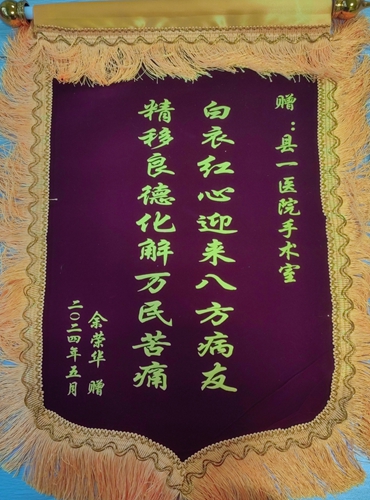 赠：县一医院手术室
白衣红心迎来八方病友
精移良德化解万民苦痛
余荣华 赠
二〇二四年五月